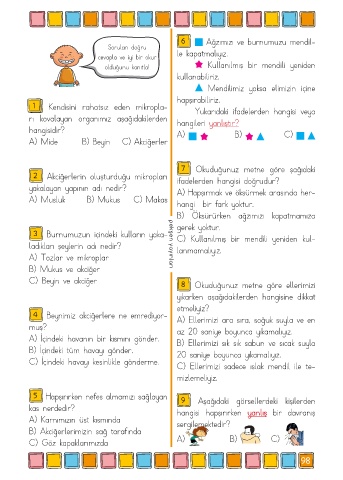 Sorulan doğru
cevapla ve iyi bir okur
olduğunu kanıtla!
1 Kendisini rahatsız eden mikropla-
rı kovalayan organımız aşağıdakilerden
hangisidir?
A) Mide B) Beyin C) Akciğerler
2 Akciğerlerin oluşturduğu mikropları
yakalayan yapının adı nedir?
A) Musluk B) Mukus C) Makas
3 Burnumuzun içindeki kılların yaka-
ladıkları şeylerin adı nedir?
A) Tozlar ve mikroplar
B) Mukus ve akciğer
C) Beyin ve akciğer
4 Beynimiz akciğerlere ne emrediyor-
muş?
A) İçindeki havanın bir kısmını gönder.
B) İçindeki tüm havayı gönder.
C) İçindeki havayı kesinlikle gönderme.
5 Hapşırırken nefes almamızı sağlayan
kas nerdedir?
A) Karnımızın üst kısmında
B) Akciğerlerimizin sağ tarafında
C) Göz kapaklarınızda
gelişen yayınları
6 Ağzımızı ve burnumuzu mendil-
le kapatmalıyız.
Kullanılmış bir mendili yeniden
kullanabiliriz.
Mendilimiz yoksa elimizin içine
hapşırabiliriz.
Yukarıdaki ifadelerden hangisi veya
hangileri yanlıştır?
A) B) C)
7 Okuduğunuz metne göre aşağıdaki
ifadelerden hangisi doğrudur?
A) Hapşırmak ve öksürmek arasında her-
hangi bir fark yoktur.
B) Öksürürken ağzımızı kapatmamıza
gerek yoktur.
C) Kullanılmış bir mendili yeniden kul-
lanmamalıyız.
8 Okuduğunuz metne göre ellerimizi
yıkarken aşağıdakilerden hangisine dikkat
etmeliyiz?
A) Ellerimizi ara sıra, soğuk suyla ve en
az 20 saniye boyunca yıkamalıyız.
B) Ellerimizi sık sık sabun ve sıcak suyla
20 saniye boyunca yıkamalıyız.
C) Ellerimizi sadece ıslak mendil ile te-
mizlemeliyiz.
9 Aşağıdaki görsellerdeki kişilerden
hangisi hapşırırken yanlış bir davranış
sergilemektedir?
A) B) C)
98